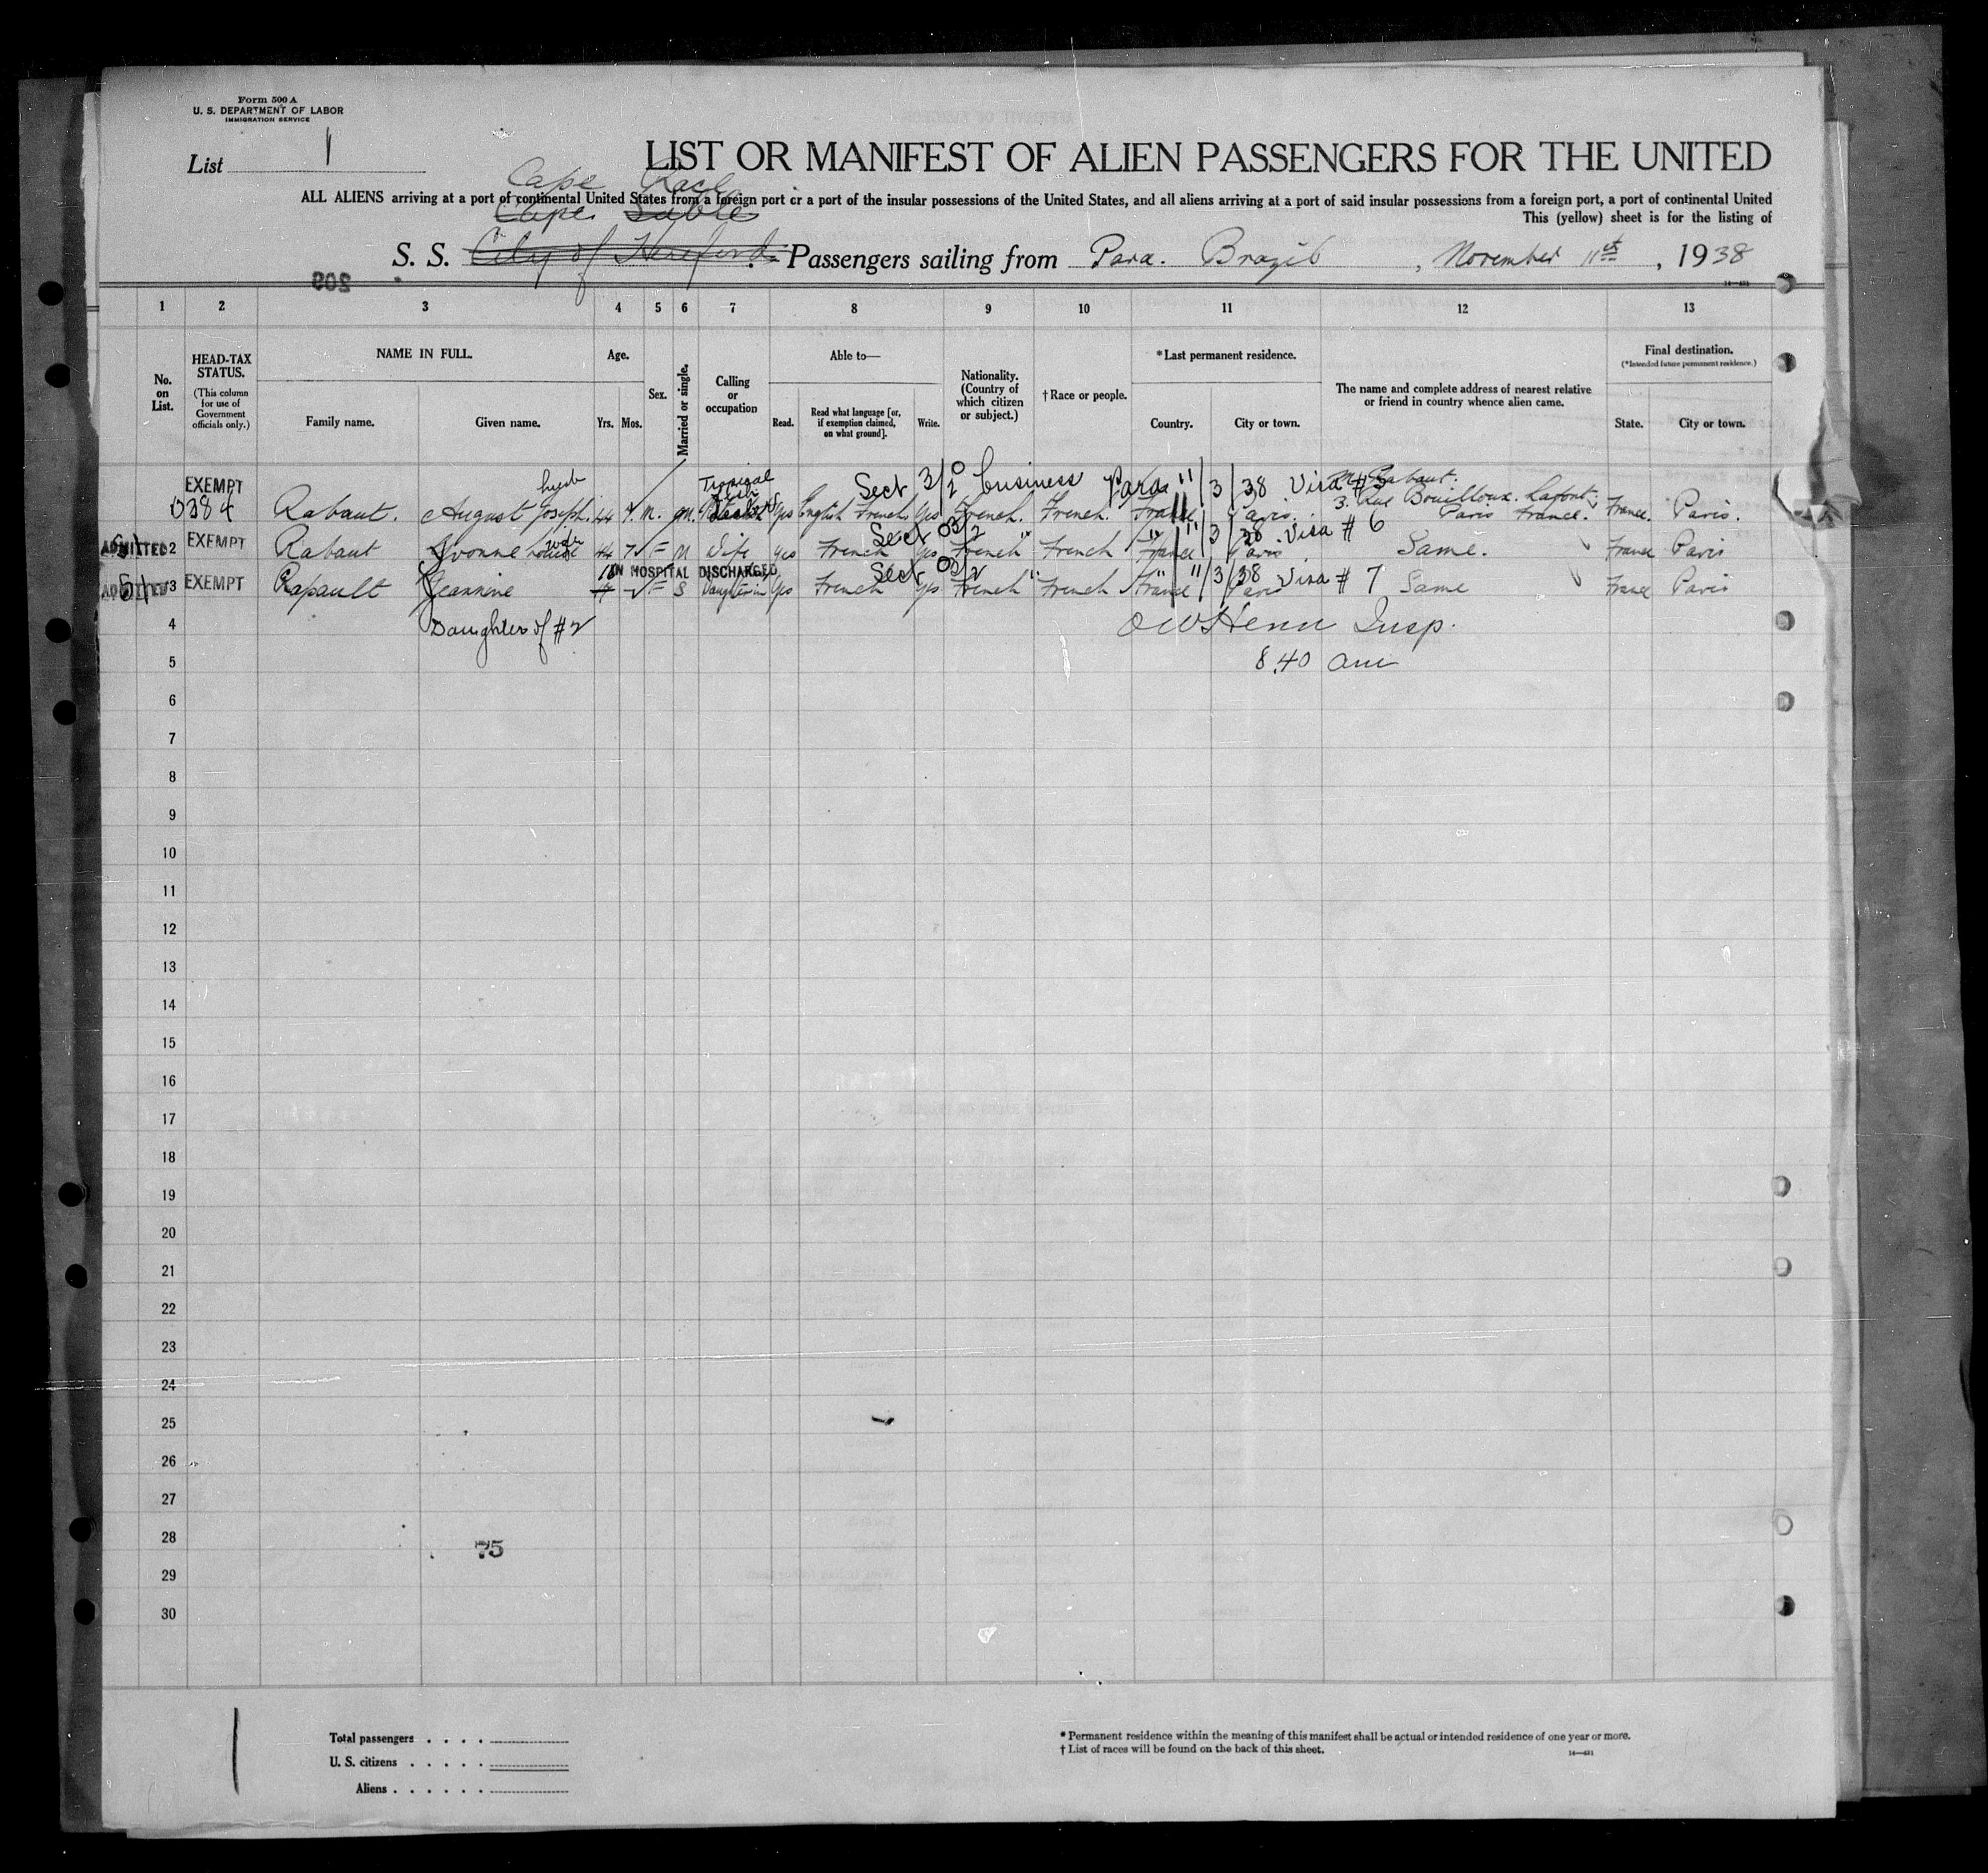 Form 500 A
U. S. DEPARTMENT OF LABOR
IMMIGRATION SERVICE
List 1
LIST OR MANIFEST OF ALIEN PASSENGERS FOR THE UNITED
Cape Race
ALL ALIENS arriving at a port of continental United States from a foreign port or a port of the insular possessions of the United States, and all aliens arriving at a port of said insular possessions from a foreign port, a port of continental United
Cape Sable
This (yellow) sheet is for the listing of
S. S. City of Hereford. Passengers sailing from Para. Brazil, November 11th, 1938
209
14—431
1 2 3 4 5 6 7 8 9 10 11 12 13
No. on List.
HEAD-TAX STATUS.
(This column for use of Government officials only.)
NAME IN FULL.
Family name. Given name.
Age.
Yrs. Mos.
Sex.
Married or single.
Calling or occupation
Able to—
Read. Read what language [or, if exemption claimed, on what ground]. Write.
Nationality. (Country of which citizen or subject.)
†Race or people.
*Last permanent residence.
Country. City or town.
The name and complete address of nearest relative or friend in country whence alien came.
Final destination.
(*Intended future permanent residence.)
State. City or town.
EXEMPT husb Tropical Fish Sect 3/2 business Para 11/3/38 Visa #5 Rabaut.
0384 Rabaut. August Joseph. 44 7. M. M. yes English French yes French. French. France Paris. 3. Rue Bouilloux. Lafont. Paris France. France. Paris.
wife Sect 3/2 " " 11/3/38 Visa # 6
ADMITTED 2 EXEMPT Rabaut Yvonne Louise 44 7 F M Wife yes French yes French French France Paris Same. France Paris
IN HOSPITAL DISCHARGED Sect 3/2 " " 11/3/38 Visa # 7
ADMITTED 3 EXEMPT Rapault Jeannine F S yes French yes French French France Paris Same France Paris
4 Daughter of #2 Insp.
5 8.40 am
6
7
8
9
10
11
12
13
14
15
16
17
18
19
20
21
22
23
24
25
26
27
28
75
29
30
Total passengers . . . .
U. S. citizens . . . . .
Aliens . . . . . .
* Permanent residence within the meaning of this manifest shall be actual or intended residence of one year or more.
† List of races will be found on the back of this sheet.
14—431